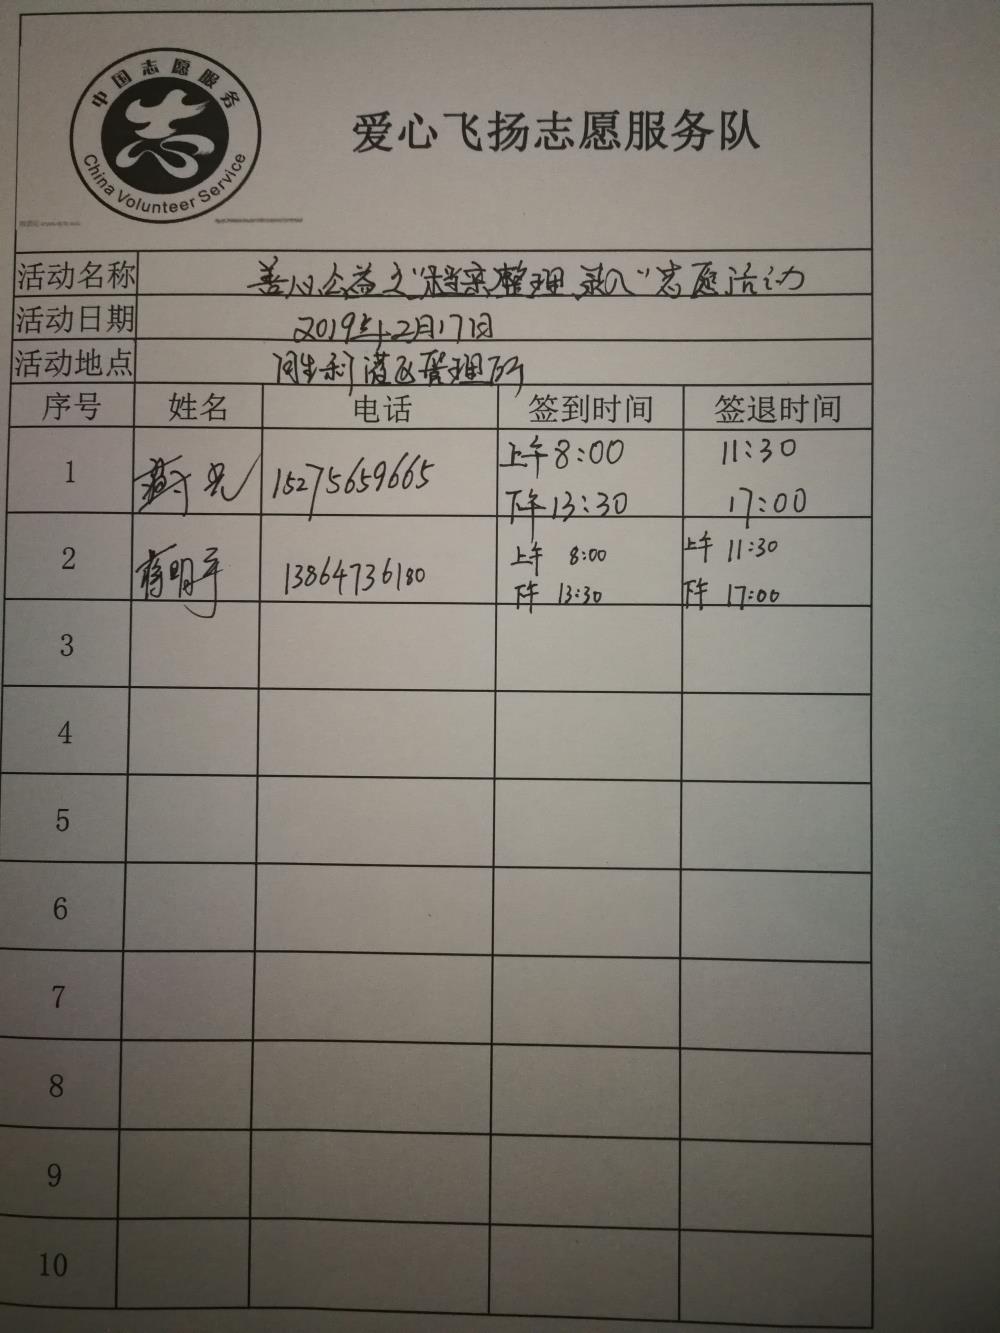 中国志愿服务
China Volunteer Service
爱心飞扬志愿服务队
活动名称 善心公益之"档案整理、录入"志愿活动
活动日期 2019年2月17日
活动地点 灌区管理所
序号 姓名 电话 签到时间 签退时间
1 15275659665 上午8:00 11:30
下午13:30 17:00
2 蒋明 13864736180 上午 8:00 上午 11:30
下午 13:30 下午 17:00
3
4
5
6
7
8
9
10